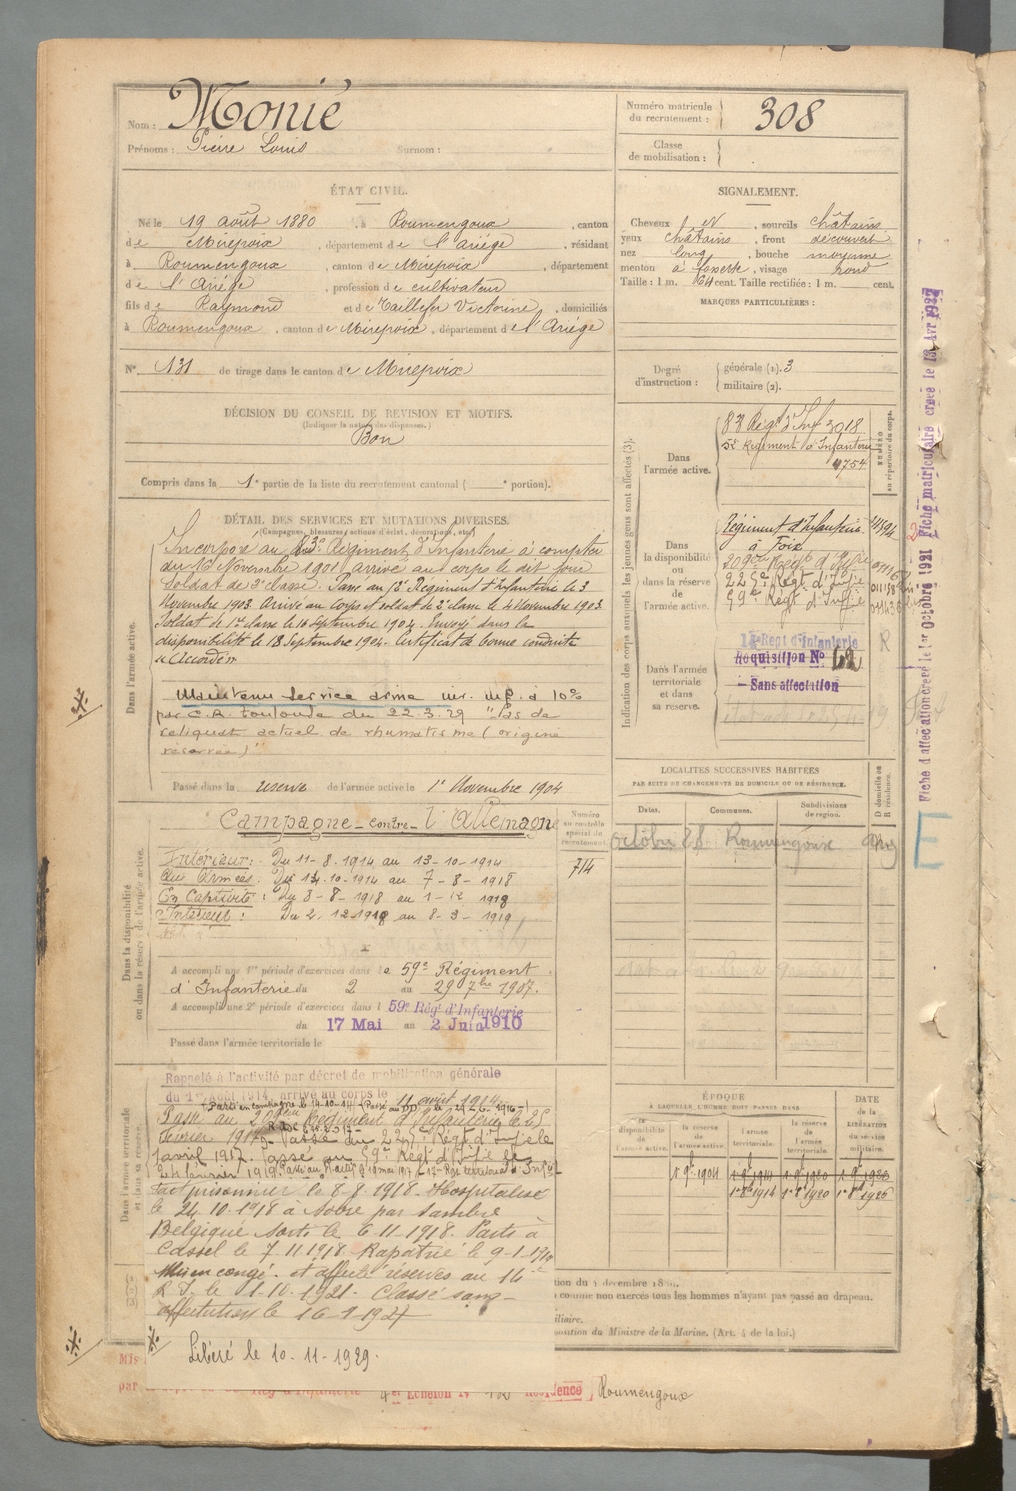 Nom : Monié
Prénoms : Pierre Louis Surnom :
Numéro matricule du recrutement : 308
Classe de mobilisation :
ÉTAT CIVIL.
Né le 19 août 1880, à Roumengoux, canton
de Mirepoix, département de l'Ariége, résidant
à Roumengoux, canton de Mirepoix, département
de l'Ariége, profession de cultivateur
fils de Raymond et de Taillefer Victorine, domiciliés
à Roumengoux, canton de Mirepoix, département de l'Ariége
N° 131 de tirage dans le canton de Mirepoix
SIGNALEMENT.
Cheveux N, sourcils châtains
yeux châtains, front découvert
nez long, bouche moyenne
menton à fossette, visage rond
Taille : 1 m. 64 cent. Taille rectifiée : 1 m. cent.
MARQUES PARTICULIÈRES :
Degré d'instruction : générale (1). 3
militaire (2).
DÉCISION DU CONSEIL DE REVISION ET MOTIFS.
(Indiquer la nature des dispenses.)
Bon
Compris dans la 1e partie de la liste du recrutement cantonal ( e portion).
DÉTAIL DES SERVICES ET MUTATIONS DIVERSES.
(Campagnes, blessures, actions d'éclat, décorations, etc.)
Incorporé au 83e Régiment d'Infanterie à compter
du 16 Novembre 1901 arrivé au corps le dit jour
Soldat de 2e classe. Passé au Régiment d'Infanterie le 3
Novembre 1903. Arrivé au corps et soldat de 2e classe le 4 Novembre 1903.
Soldat de 1re classe le 16 Septembre 1904. Envoyé dans la
disponibilité le 18 Septembre 1904. Certificat de bonne conduite
"Accordé"
Maintenu service armé inv. inf. à 10%
par C.R. Toulouse du 22.3.29 "Pas de
reliquat actuel de rhumatisme (origine
réservée)"
Passé dans la réserve de l'armée active le 1er Novembre 1904
Dans l'armée active.
Indication des corps auxquels les jeunes gens sont affectés (3).
NUMÉRO au répertoire du corps.
Dans l'armée active.
83 Régt d'Inf 3018
Régiment d'Infanterie
4754
Dans la disponibilité ou dans la réserve de l'armée active.
Régiment d'Infanterie
à Foix
209e Régt d'Inf
225e Régt d'Infie
59e Régt d'Infie
Dans l'armée territoriale et dans sa réserve.
Régt d'Infanterie
Réquisition N° 62
- Sans affectation
Fiche d'affectation créée le 1er Octobre 1921 Fiche matriculaire créée le Avr 1927
Campagne contre l'Allemagne
Numéro au contrôle spécial du recrutement
714
Intérieur : Du 11-8-1914 au 13-10-1914
Aux Armées : Du 14-10-1914 au 7-8-1918
En Captivité : Du 8-8-1918 au 1-12 1918
Intérieur : Du 2.12.1918 au 8-3-1919
A accompli une 1re période d'exercices dans le 59e Régiment
d'Infanterie du 2 au 29 7bre 1907.
A accompli une 2e période d'exercices dans l 59e Régt d'Infanterie
du 17 Mai au 2 Juin 1910
Passé dans l'armée territoriale le
Dans la disponibilité ou dans la réserve de l'armée active.
LOCALITÉS SUCCESSIVES HABITÉES
PAR SUITE DE CHANGEMENTS DE DOMICILE OU DE RÉSIDENCE.
D domicile ou R résidence.
Dates. Communes. Subdivisions de région.
Roumengoux
E
Rappelé à l'activité par décret de mobilisation générale
du 1er Août 1914, arrivé au corps le 11 août 1914.
Parti en campagne le 14-10-14
Passé au 209eme Régiment d'Infanterie le 25
Février 1917. Passé au 225e Régt d'Infie le
1 avril 1917. Passé au 59e Régt d'Infie le
Fait prisonnier le 8-8-1918. Hospitalisé
le 24.10.1918 à Solre par Sambre
Belgique Sorti le 6-11-1918. Parti à
Cassel le 7.11.1918. Rapatrié le 9-1-1919
Mis en congé. et affecté réserves au 14e
R.I. le 1-10-1921. Classé sans-
affectation le 16-1-1927
Libéré le 10-11-1929.
Dans l'armée territoriale et dans sa réserve.
ÉPOQUE
À LAQUELLE L'HOMME DOIT PASSER DANS
DATE DE LA LIBÉRATION du service militaire.
la disponibilité de l'armée active. la réserve de l'armée active. l'armée territoriale. la réserve de l'armée territoriale.
1 9bre 1904 1 9bre 1914 1 9bre 1920
1 8bre 1914 1 8bre 1920 1 8bre 1926
tion du décembre 18
comme non exercés tous les hommes n'ayant pas passé au drapeau.
iliaire.
position du Ministre de la Marine. (Art. 4 de la loi.)
Mis
par
Echelon N° Résidence Roumengoux